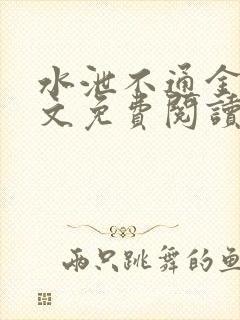 水泄不通全
文免費閱讀
兩只跳舞的魚